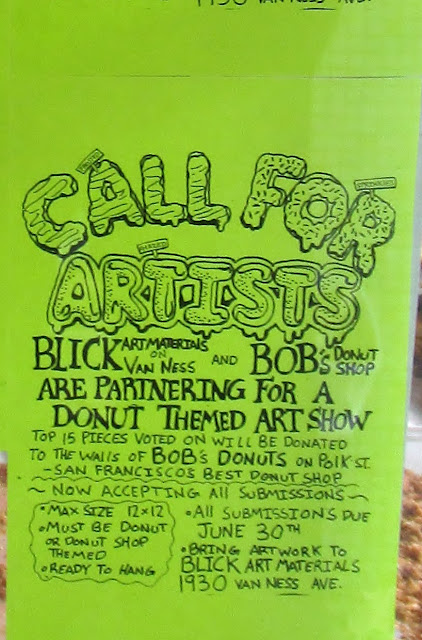 1930 VAN NESS AVE.
SPRINKLES
CALL FOR
GLAZED
ARTISTS
BLICK ART MATERIALS ON VAN NESS AND BOB's DONUT SHOP
ARE PARTNERING FOR A
DONUT THEMED ART SHOW
TOP 15 PIECES VOTED ON WILL BE DONATED
TO THE WALLS OF BOB's DONUTS ON POLK ST.
-SAN FRANCISCOS BEST DONUT SHOP
~ NOW ACCEPTING All SUBMISSIONS ~
• MAX SIZE 12x12
• MUST BE DONUT
OR DONUT SHOP
THEMED
• READY TO HANG
• All SUBMISSIONS DUE
JUNE 30TH
• BRING ARTWORK TO
BLICK ART MATERIALS
1930 VAN NESS AVE.